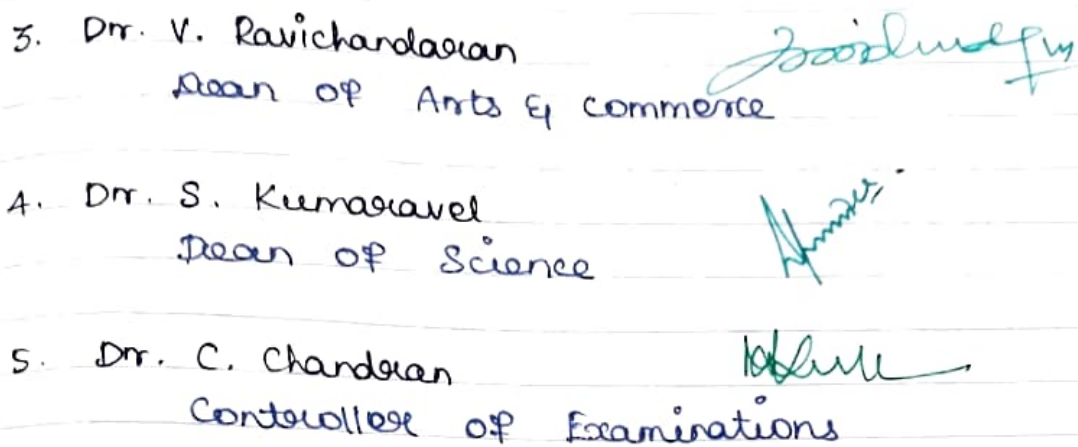 3. Dr. V. Ravichandaran
Dean of Arts & commerce
4. Dr. S. Kumaravel
Dean of Science
5. Dr. C. Chandran
Controller of Examinations